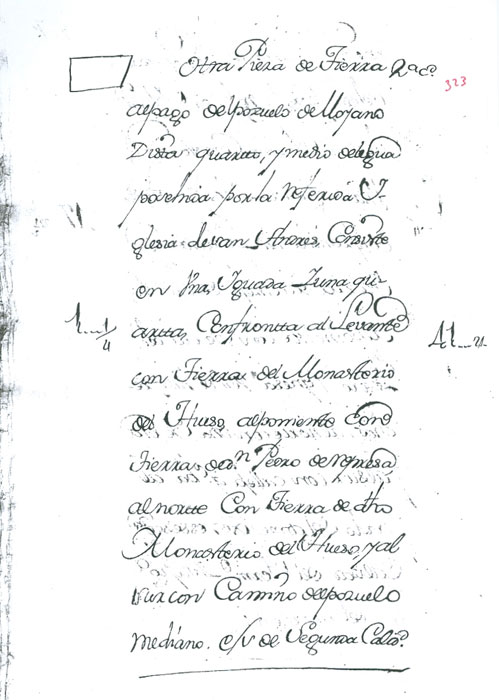 Otra Pieza de Tierra Q.e a.o
323
al pago del pozuelo de Mozano
Dista quarto, y medio de legua
posehida por la referida Y-
glesia de San Andres, Consiste
en Una, Yguada I una qu-
artta, Confrontta al Levante
1....1/4
41....
con Tierra del Monasterio
del Hueso, al poniente Con
Tierras, de D.n Pedro de
al nortte Con Tierra de dho
Monasterio del Hueso, y al
Sur con Camino del pozuelo
mediano. es de Segunda Calid.